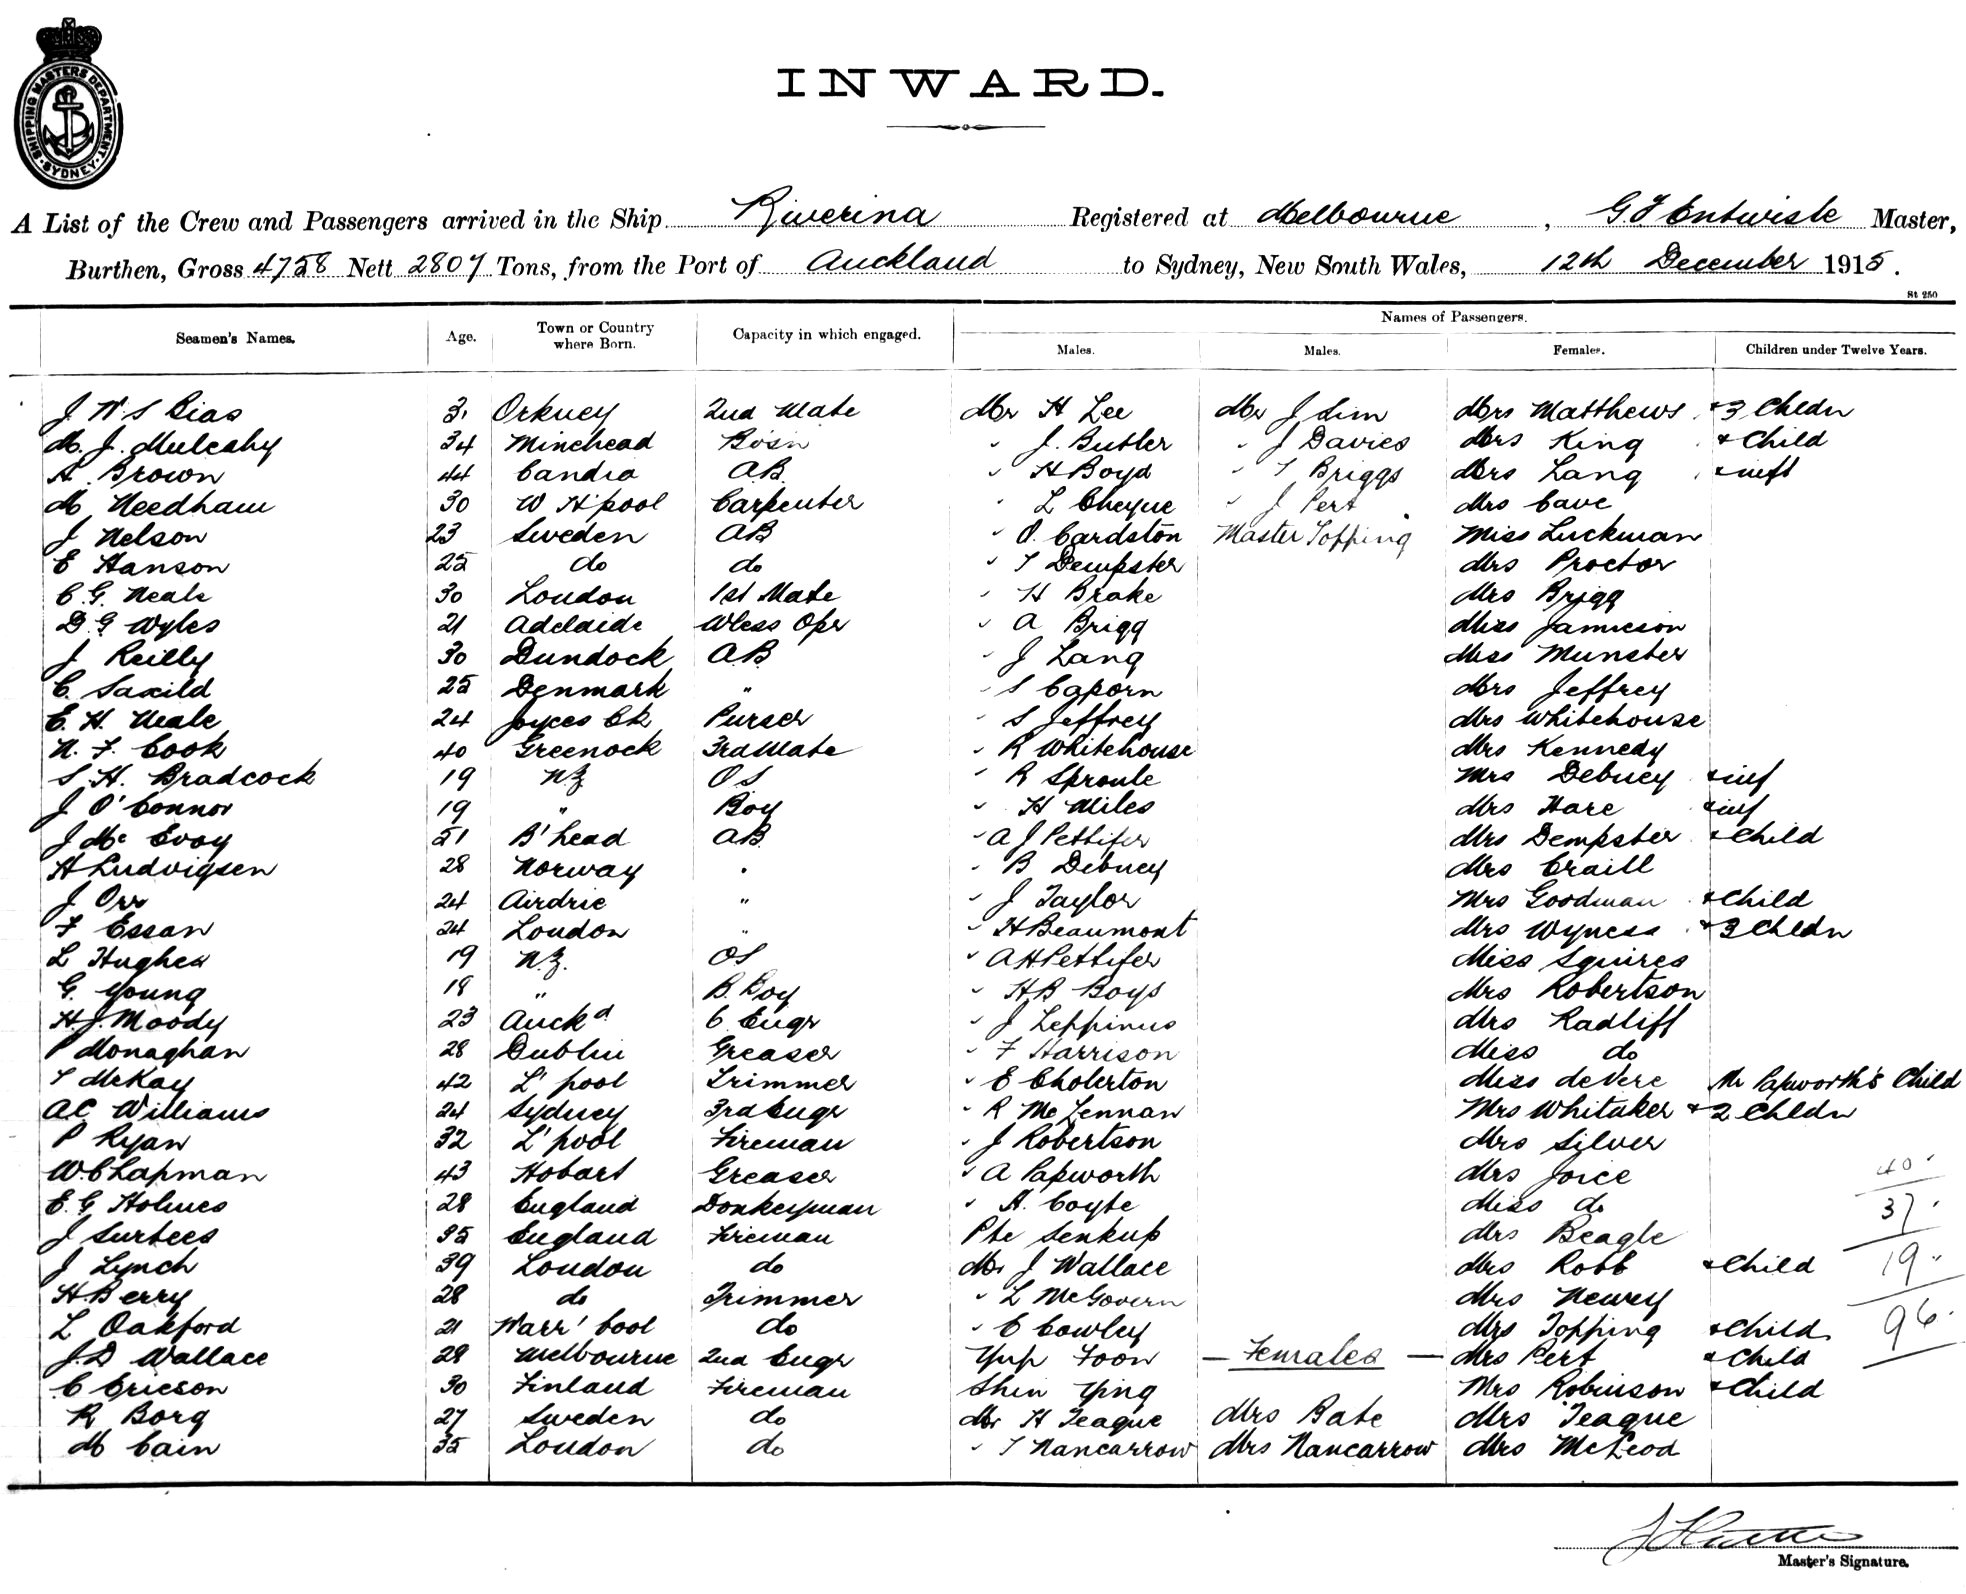 SHIPPING MASTERS DEPARTMENT. SYDNEY
INWARD.
A List of the Crew and Passengers arrived in the Ship Riverina Registered at Melbourne, G. F. Entwisle Master,
Burthen, Gross 4758 Nett 2807 Tons, from the Port of Auckland to Sydney, New South Wales, 12th December 1915.
St 250
Seamen's Names. Age. Town or Country where Born. Capacity in which engaged. Names of Passengers.
Males. Males. Females. Children under Twelve Years.
J W S Bias 31 Orkney 2nd Mate Mr H Lee Mr J Sim Mrs Matthews + 3 Chldn
M. J. Mulcahy 34 Minehead Bosn " J. Butler " J Davies Mrs King + Child
A Brown 44 Candia A.B. " H Boyd " T Briggs Mrs Lang + inft
M Needham 30 W H'pool Carpenter " L Cheyne " J Pert Mrs Cave
J Nelson 23 Sweden AB " O. Cardston Master Topping Miss Luckman
E Hanson 25 do do " T Dempster Mrs Proctor
C. G. Neale 30 London 1st Mate " H Brake Mrs Brigg
D G Wyles 21 Adelaide Wless Oper " A Brigg Miss Jamieson
J Reilly 30 Dundock A.B. " J Lang Miss Munster
C. Saxild 25 Denmark " " S Caporn Mrs Jeffrey
E. H. Neale 24 Joyces Ck Purser " S Jeffrey Mrs Whitehouse
N. F. Cook 40 Greenock 3rd Mate " R Whitehouse Mrs Kennedy
S. H. Bradcock 19 N.Z OS " R Sproule Mrs Debney + inf
J O'Connor 19 " Boy " H Miles Mrs Hare + inf
J Mc Evoy 51 B'head AB " A J Pettifer Mrs Dempster + Child
H Ludvigsen 28 Norway " " B Debney Mrs Craill
J Orr 24 Airdrie " " J Taylor Mrs Goodman + Child
F Essan 24 London " " H Beaumont Mrs Wyness + 3 Chldn
L Hughes 19 N.Z. OS " A H Pettifer Miss Squires
G. Young 18 " B. Boy " H B Boys Mrs Robertson
H. J. Moody 23 Auckd C Engr " J Leppinus Mrs Radliff
P Monaghan 28 Dublin Greaser " F Harrison Miss do
T McKay 42 L'pool Trimmer " E Cholerton Miss deVere Mr Papworth's Child
A C Williams 24 Sydney 3rd Engr " R McLennan Mrs Whitaker + 2 Chldn
P Ryan 32 L'pool Fireman " J Robertson Mrs Silver
W. Chapman 43 Hobart Greaser " A Papworth Mrs Joice 40
E. G Holmes 28 England Donkeyman " A. Coyte Miss do 37
J Surtees 35 England Fireman Pte Senkup Mrs Beagle
J Lynch 39 London do Mr J Wallace Mrs Robb + Child 19
H. Berry 28 do Trimmer " L McGovern Mrs Newey
L Oakford 21 Warr'bool do " C Cowley Mrs Topping + Child 96
J. D Wallace 29 Melbourne 2nd Engr Yup Foon — Females — Mrs Pert + Child
C Ericson 30 Finland Fireman Shin Ying Mrs Robinson + Child
R Borg 27 Sweden do Mr H Teague Mrs Bate Mrs Teague
M Cain 35 London do " T Nancarrow Mrs Nancarrow Mrs McLeod
Master's Signature.